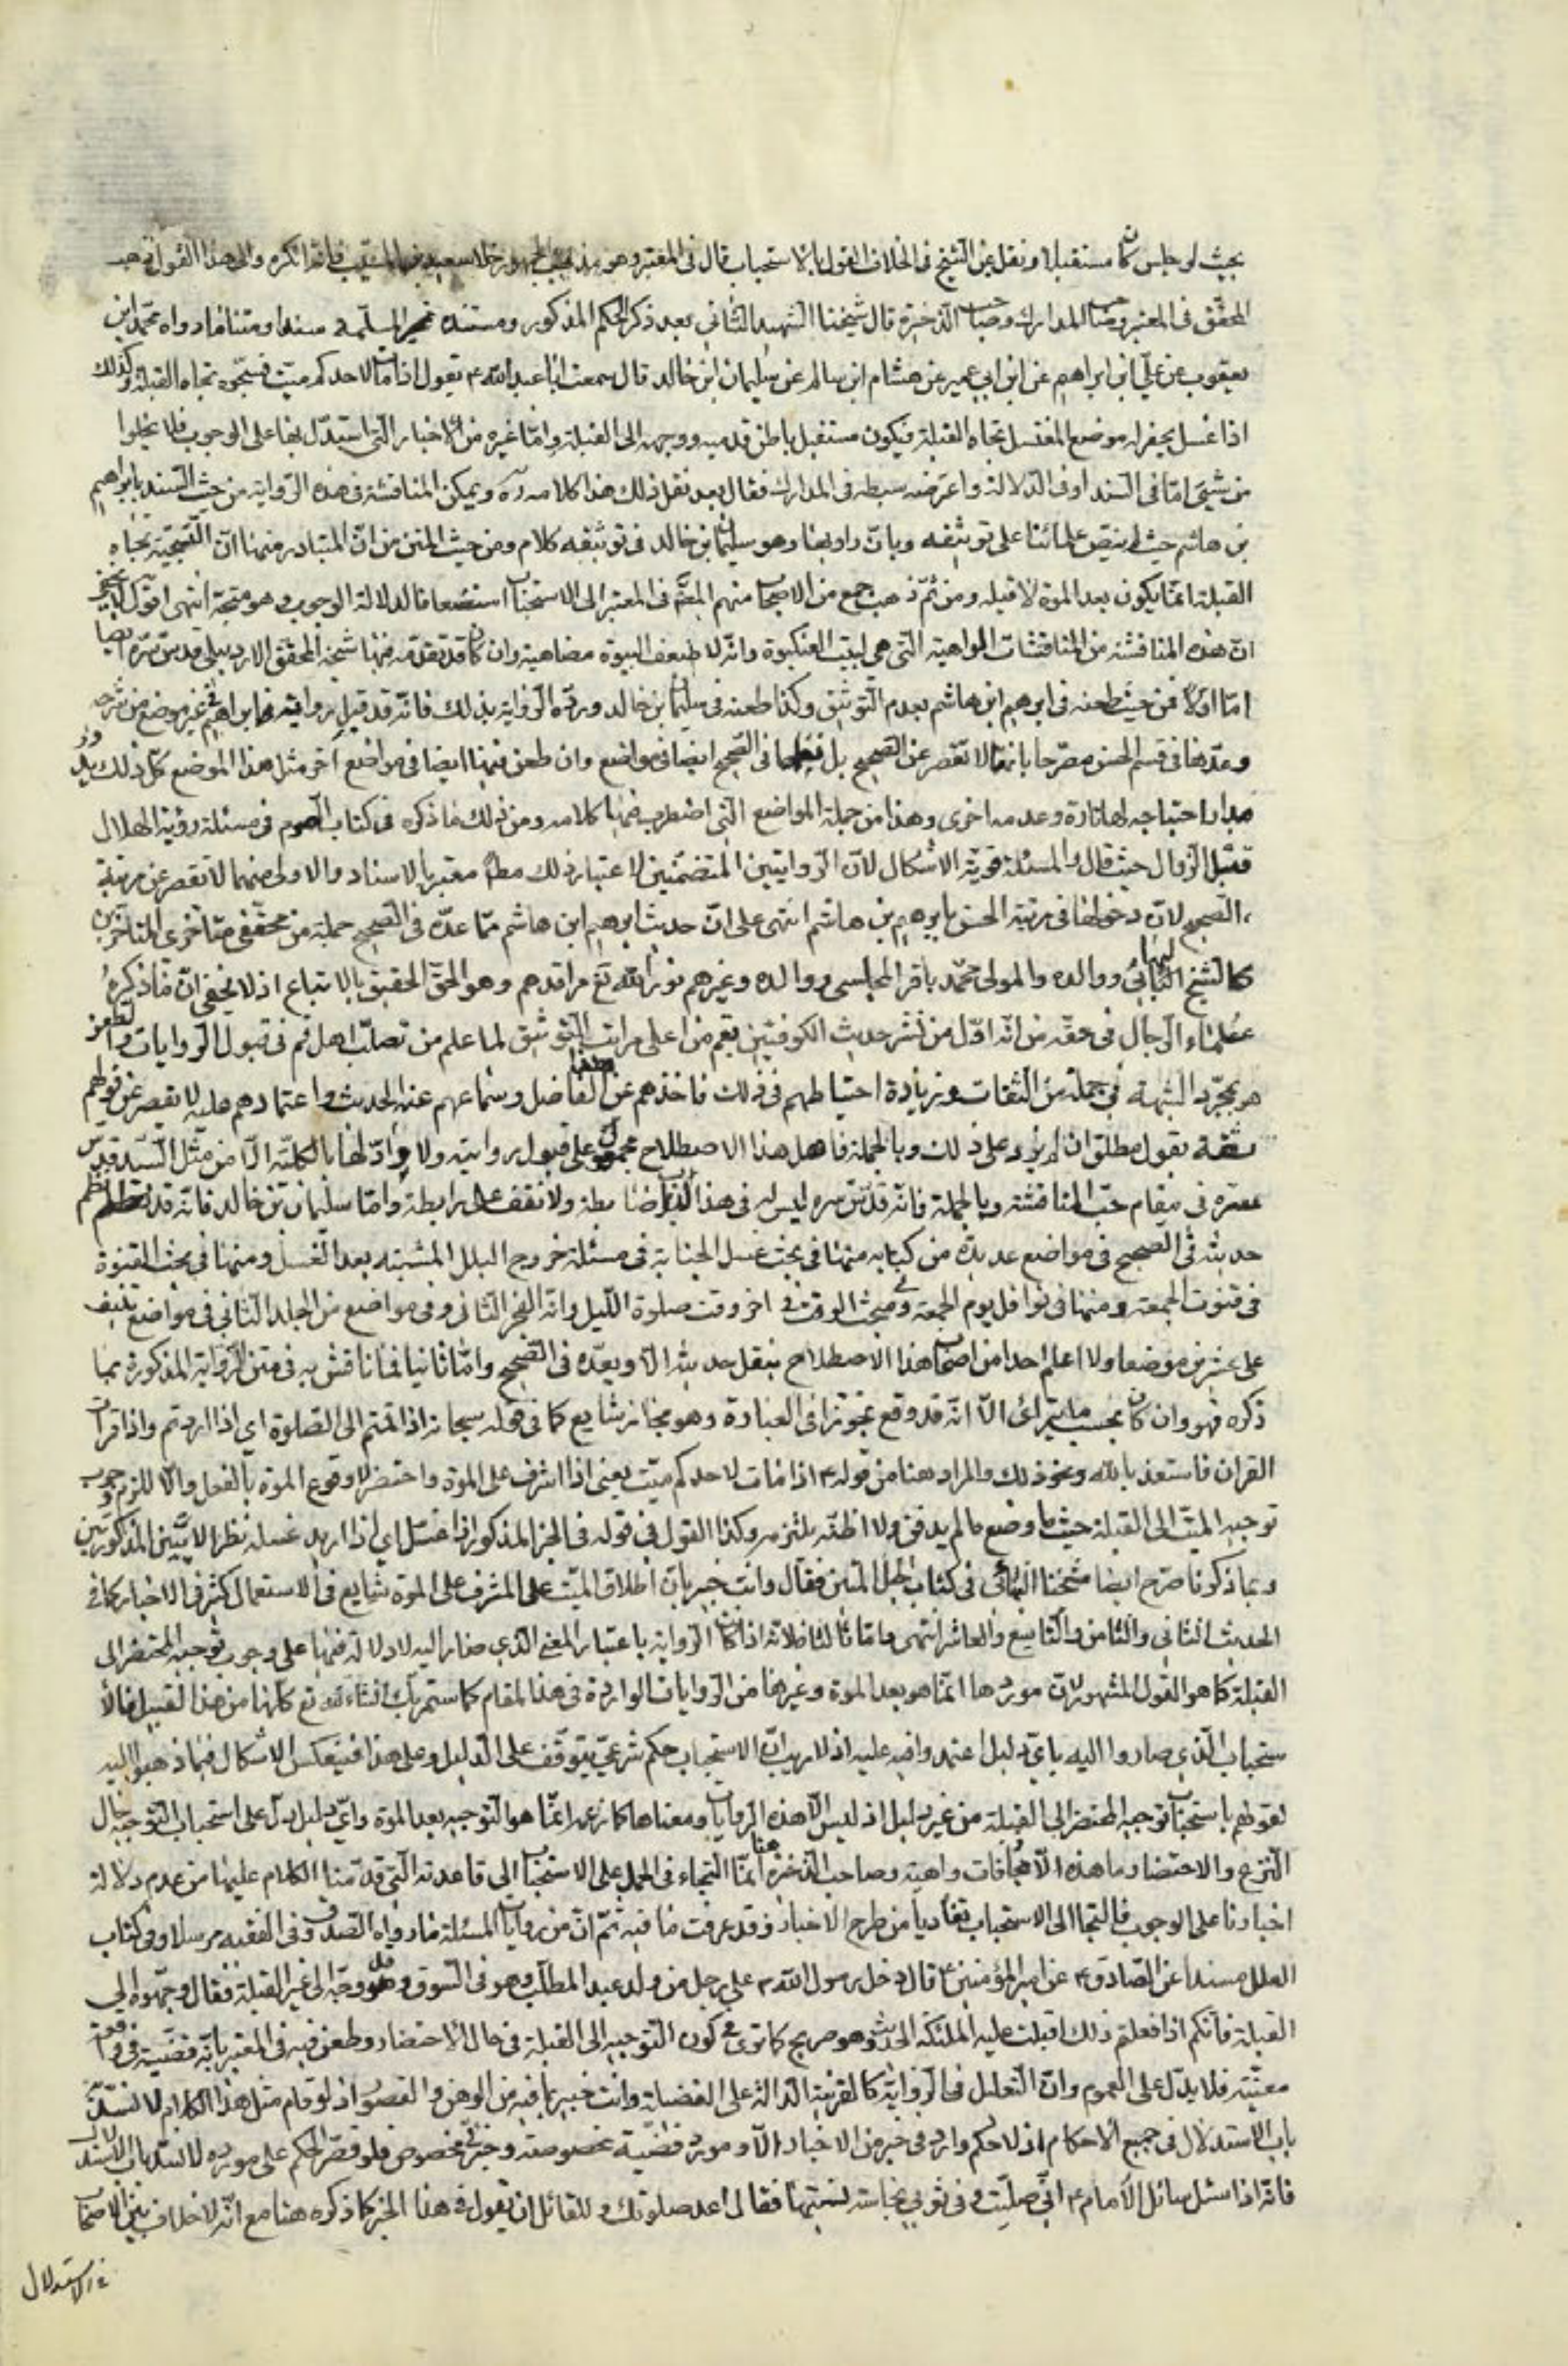 بحيث لو جلس كان مستقبلا ونقل عن الشيخ فى الخلاف القول بالاستحباب قال فى المعتبر وهو مذهب الجمهور خلا سعيد بن المسيب فانه انكره والى هذا القول ذهب
المحقق فى المعتبر وصاحب المدارك وصاحب الذخيرة قال شيخنا الشهيد الثانى بعد ذكر الحكم المذكور ومستنده خبر السلمة سندا ومتنا ما رواه محمد ابن
يعقوب عن على ابن ابراهيم عن ابن ابى عمير عن هشام ابن سالم عن سليمان ابن خالد قال سمعت ابا عبد الله ع يقول اذا مات لاحدكم ميت فسجوه تجاه القبلة وكذلك
اذا غسل يحفر له موضع المغتسل تجاه القبلة فيكون مستقبل باطن قدميه ووجهه الى القبلة واما غيره من الاخبار التى استدل بها على الوجوب فلا يخلوا
من شيئ اما فى السند او فى الدلالة واعترضه سبطه فى المدارك فقال بعد نقل ذلك هذا كلامه ره ويمكن المناقشة فى هذه الرواية من حيث السند بابراهيم
بن هاشم حيث لم ينص علمائنا على توثيقه وبان راويها وهو سليمان بن خالد فى توثيقه كلام ومن حيث المتن من ان المتبادر منها ان التسجية تجاه
القبلة انما يكون بعد الموت لا قبله ومن ثم ذهب جمع من الاصحاب منهم المص فى المعتبر الى الاستحباب استضعافا لدلالة الوجوب وهو متجه انتهى اقول لا يخفى
ان هذه المناقشة من المناقشات الواهية التى هى لبيت العنكبوت وانه لا ضعف البيوت مضاهية وان كان قد تقدمه فيها شيخه المحقق الاردبيلى قدس سره ايضا
اما اولا فمن حيث طعنه فى ابرهيم ابن هاشم بعدم التوثيق وكذا طعنه فى سليمان بن خالد ورده الرواية بذلك فانه قد قبل رواية ابراهيم فى غير موضع من شرحه
وعدها فى قسم الحسن مصرحا بانها لا تقصر عن الصحيح بل نظمها فى الصحيح ايضا فى مواضع وان طعن فيها ايضا فى مواضع اخر مثل هذا الموضع كل ذلك يدور
مدار احتياجه لها تارة وعدمه اخرى وهذا من جملة المواضع التى اضطرب فيها كلامه ومن ذلك ما ذكره فى كتاب الصوم فى مسئلة رؤية الهلال
قبل الزوال حيث قال والمسئلة قوية الاشكال لان الروايتين المتضمنتين لاعتبار ذلك مط معتبر بالاسناد والاولى منهما لا تقصر عن مرتبة
الصحيح لان دخولها فى مرتبة الحسن بابرهيم بن هاشم انتهى على ان حديث ابرهيم ابن هاشم مما عده فى الصحيح جملة من محققى متاخرى المتاخرين
كالشيخ البهائى ووالده والمولى محمد باقر المجلسى ووالده وغيرهم نور الله تع مراقدهم وهو الحق الحقيق بالاتباع اذ لا يخفى ان ما ذكره
علماء الرجال فى حقه من انه اول من نشر حديث الكوفيين بقم من اعلى مراتب التوثيق لما علم من تصلب اهل قم فى قبول الروايات والطعن
هو بمجرد الشبهة فى جملة من الثقات وزيادة احتياطهم فى ذلك فاخذهم عن هذا الفاضل وسماعهم عنه الحديث واعتمادهم عليه لا يقصر عن قولهم
ثقة بقول مطلق ان لم يزد على ذلك وبالجملة فاهل هذا الاصطلاح مجمعون على قبول روايته ولا راد لها بالكلية الا من مثل السيد قدس
سره فى مقام حب المناقشة وبالجملة فانه قدس سره ليس له فى هذا الباب ضابطة ولا نقف على رابطة واما سليمان بن خالد فانه قد نظم
حديثه فى الصحيح فى مواضع عديدة من كتابه منها فى بحث غسل الجنابة فى مسئلة خروج البلل المشتبه بعد الغسل ومنها فى بحث القنوت
فى قنوت الجمعة ومنها فى نوافل يوم الجمعة وفى مبحث الوقت فى اخر وقت صلوة الليل وانه الفجر الثانى وفى مواضع من الجلد الثانى فى مواضع تنيف
على عشرين موضعا ولا اعلم احدا من اصحاب هذا الاصطلاح ينقل حديثه الا ويعده فى الصحيح واما ثانيا فما ناقش به فى متن الرواية المذكورة بما
ذكره فهو وان كان بحسب ما يترائ الا انه قد وقع تجوزا فى العبارة وهو مجاز شايع كما فى قوله سبحانه اذا قمتم الى الصلوة اى اذا اردتم واذا قرات
القران فاستعذ بالله ونحو ذلك والمراد هنا من قوله ع اذا مات لاحدكم ميت يعنى اذا اشرف على الموت واحتضر لا وقوع الموت بالفعل والا للزم وجوب
توجيه الميت الى القبلة حيث ما وضع ما لم يدفن ولا اظنه يلتزمه وكذا القول فى قوله فى الخبر المذكور اذا غسل اى اذا اريد غسله نظرا الى الايتين المذكورتين
وبما ذكرنا صرح ايضا شيخنا البهائى فى كتاب الحبل المتين فقال وانت خبير بان اطلاق الميت على المشرف على الموت شايع فى الاستعمال كثير فى الاخبار كما فى
الحديث الثانى والثامن والتاسع والعاشر انتهى واما ثالثا فلانه اذا كان الرواية باعتبار المعنى الذى صار اليه لا دلالة فيها على وجوب توجيه المحتضر الى
القبلة كما هو القول المشهور لان موردها انما هو بعد الموت وغيرها من الروايات الواردة فى هذا المقام كما ستمر بك انشاء الله تع كلها من هذا القبيل فالا
ستحباب الذى صاروا اليه باى دليل اعتمدوا فيه عليه اذ لا ريب ان الاستحباب حكم شرعى يتوقف على الدليل وعلى هذا فينعكس الاشكال فيما ذهبوا اليه
لقولهم باستحباب توجيه المحتضر الى القبلة من غير دليل اذ ليس الا هذه الروايات ومعناها كما زعمه انما هو التوجيه بعد الموت واى دليل يدل على استحباب التوجيه حال
النزع والاحتضار وما هذه الا مجازفات واهية وصاحب الذخيرة هنا انما التجاء فى الحمل على الاستحباب الى قاعدته التى قدمنا الكلام عليها من عدم دلالة
اخبارنا على الوجوب فالتجا الى الاستحباب تفاديا من طرح الاخبار وقد عرفت ما فيه ثم ان من روايات المسئلة ما رواه الصدوق فى الفقيه مرسلا وفى كتاب
العلل مسندا عن الصادق ع عن امير المؤمنين ع قال دخل رسول الله ص على رجل من ولد عبد المطلب وهو فى السوق وقد وجه الى غير القبلة فقال وجهوه الى
القبلة فانكم اذا فعلتم ذلك اقبلت عليه الملئكة الحديث وهو صريح كما ترى فى كون التوجيه الى القبلة فى حال الاحتضار وطعن فيه فى المعتبر بانه قضية فى واقعة
معينة فلا يدل على العموم وان التعليل فى الرواية كالقرينة الدالة على الفضيلة وانت خبير بما فيه من الوهن والقصور اذ لو قام مثل هذا الكلام لانسد
باب الاستدلال فى جميع الاحكام اذ لا حكم وارد فى خبر من الاخبار الا ومورده قضية مخصوصة وجزئى مخصوص فلو قصر الحكم على مورده لانسد باب الاستدلال
فانه اذا سئل سائل الامام ع انى صليت وفى ثوبى نجاسة نسيتها فقال اعد صلوتك وللقائل ان يقول فى هذا الخبر كما ذكره هنا مع انه لا خلاف بين الاصحاب
فى الاستدلال